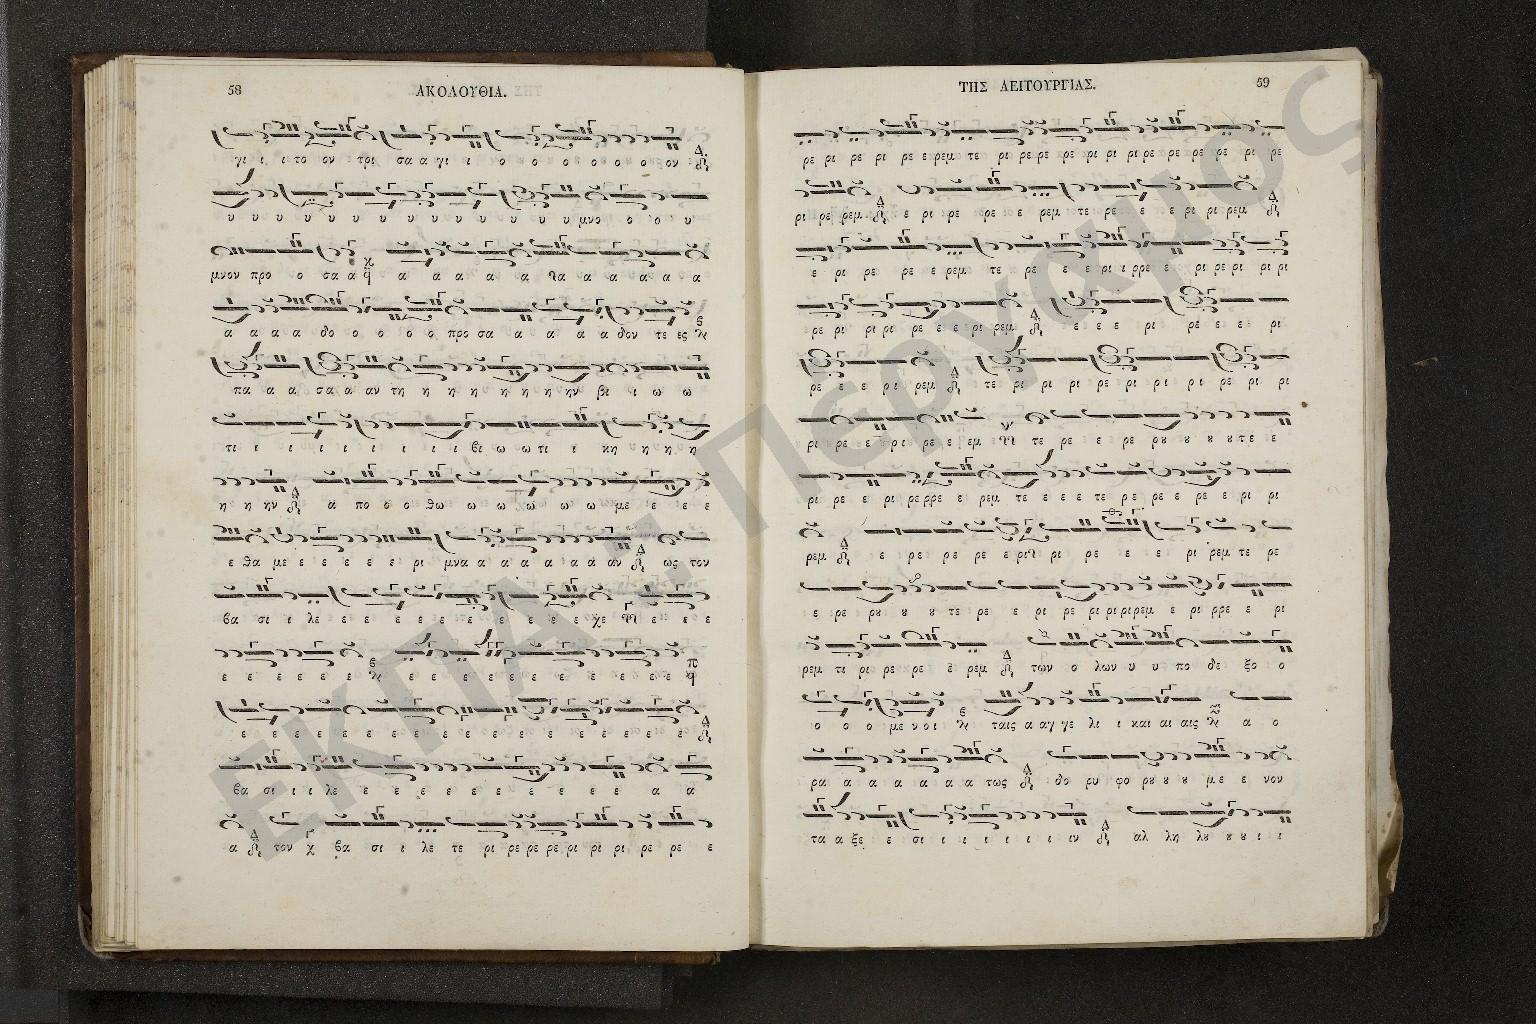 58
ΑΚΟΛΟΥΘΙΑ.
γι ι ι το ον τρι σα α γι ι ο ο ο ο ο ο ο ον
υ υ υ υ υ υ υ υ υ υ υ υ υ υ μνο ο ο υ
μνον προ ο σα α α α α α α α α α α α α
α α α α δο ο ο ο ο προ σα α α α α δον τε ες
πα α α σα α αν τη η η η η η η ην βι ι ω ω
τι ι ι ι ι ι ι ι ι βι ω ω τι ι κη η η η
η η ην α πο ο ο θω ω ω ω ω ω με ε ε ε
ε θα με ε ε ε ε ε ρι μνα α α α α α α αν ως τον
βα σι ι λε ε ε ε ε ε ε ε ε ε ε χε ε ε ε
ε ε ε ε ε ε ε ε ε ε ε ε ε ε ε ε ε
ε ε ε ε ε ε ε ε ε ε ε ε ε ε ε ε ε ε
βα σι ι ι λε ε ε ε ε ε ε ε ε ε ε ε α α
α τον χ βα σι ι λε τε ρι ρε ρε ρε ρι ρι ρι ρε ρε ε
ΤΗΣ ΛΕΙΤΟΥΡΓΙΑΣ.
59
ρε ρι ρε ρι ρε ε ρεμ τε ρι ρε ρε ρε ρι ρι ρι ρε ρε ρε ρε ρι ρε
ρι ρε ρεμ ε ρι ρε ρε ε ρεμ τε ρε ε ε ρι ρι ρεμ
ε ρι ρε ρε ε ρεμ τε ρε ε ε ρι ι ρρε ε ρι ρε ρι ρι ρι
ρε ρι ρι ρι ρε ε ε ρι ρεμ ε ε ε ρι ρε ε ε ρι
ρε ε ε ρι ρεμ τε ρι ρι ρι ρε ρι ρι ρι ρι ρε ρι ρι
ρι ρε ε ρι ρε ε εμ τε ρε ε ρε ρου ου ου ου τε ε
ρι ρε ε ρι ρε ρρε ε ρεμ τε ε ε ε τε ρε ρε ε ρε ε ρι ρι
ρεμ ε ρε ρε ρε ε ρι ρι ρε ε ε ρι ρεμ τε ρε
ε ρε ρου ου ου τε ρε ε ρι ρε ρι ρι ρι ρεμ ε ρι ρρε ε ρι
ρεμ τι ρι ρε ρε ε ρεμ των ο λων υ υ πο δε ξο ο
ο ο ο με νοι ταις α αγ γε λι ι και αι αις α ο
ρα α α α α α α τως δο ρυ φο ρου ου ου με ε νον
τα α ξε ε σι ι ι ι ι ι ιν αλ λη λου ου ου ι ι
ΕΚΠΑ / Πέργαμος